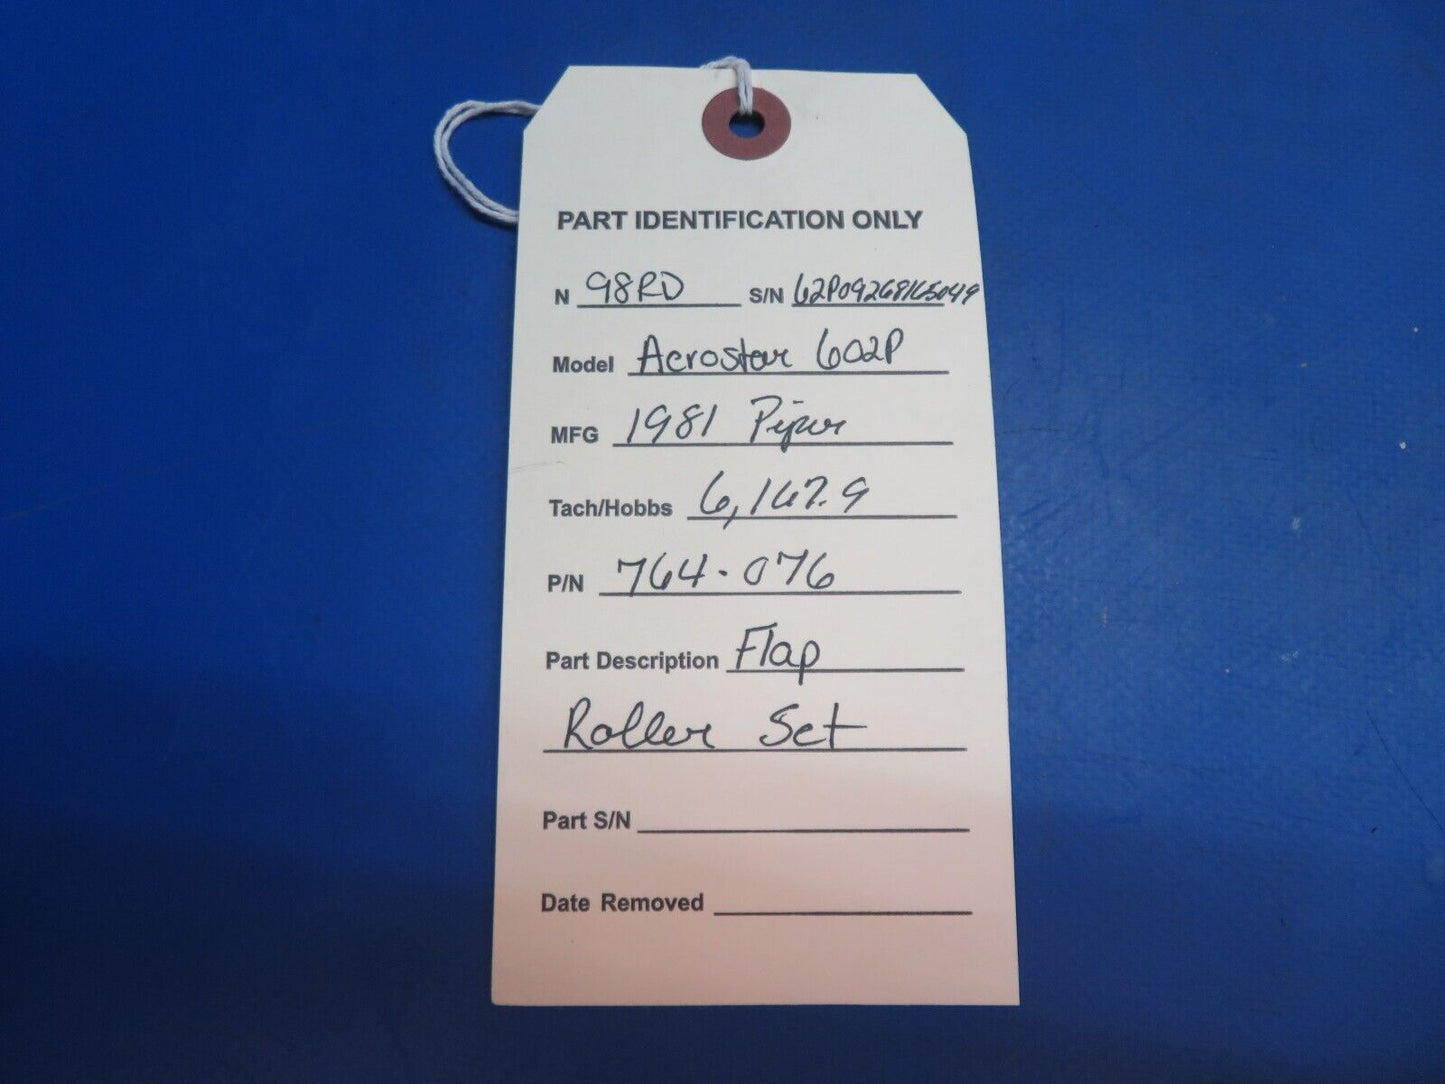 PART IDENTIFICATION ONLY
N 98RD S/N 62P09268165049
Model Aerostar 602P
MFG 1981 Piper
Tach/Hobbs 6,167.9
P/N 764-076
Part Description Flap
Roller Set
Part S/N
Date Removed